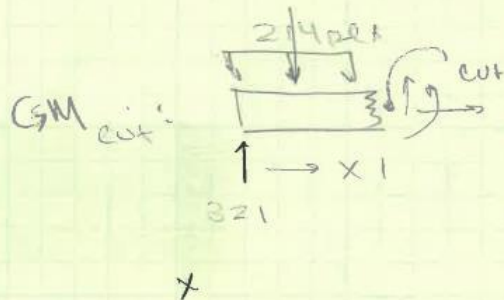 2.4 plf
cut
G+M cut:
→ x 1
321
x